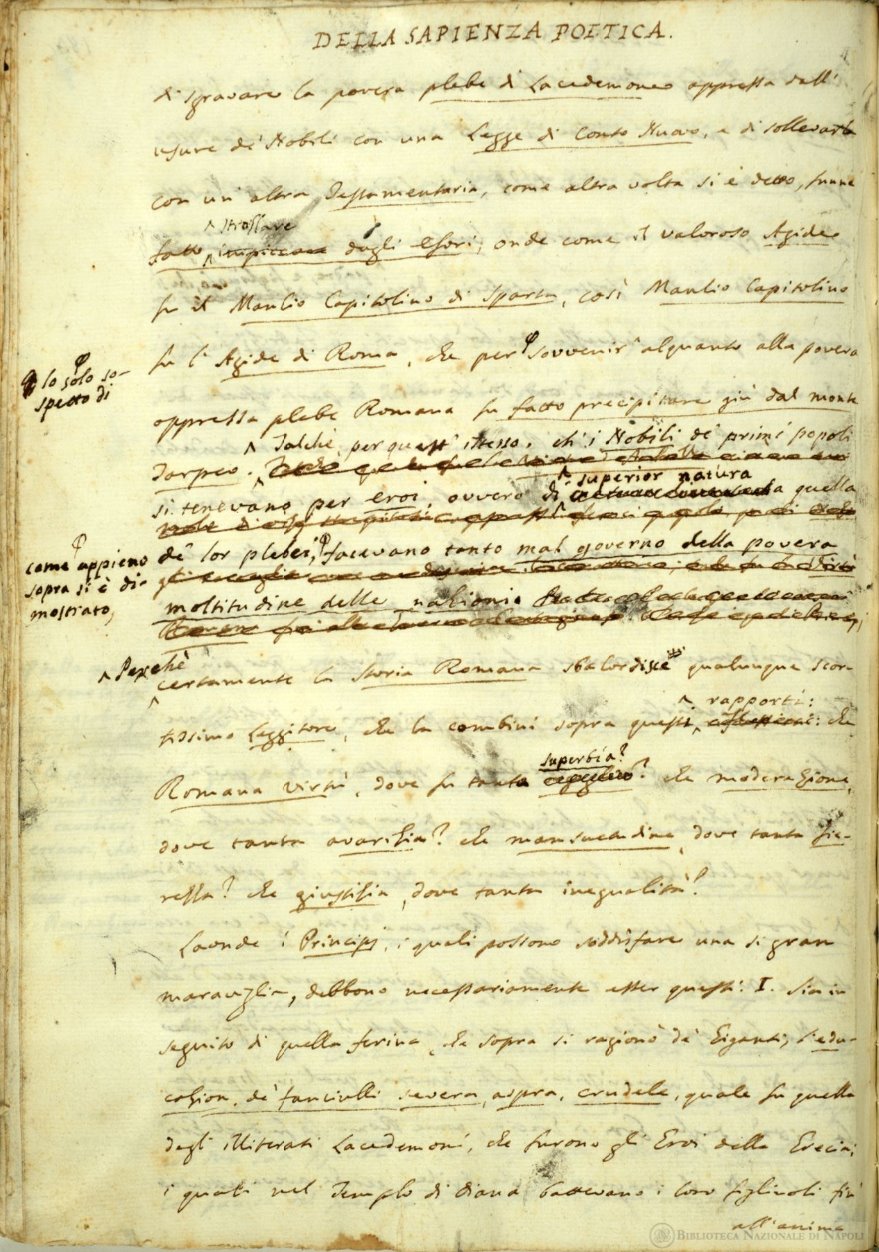 DELLA SAPIENZA POETICA.
di sgravare la povera plebe di Lacedemone oppressa dall'
usure de' Nobili con una Legge di Conto Nuovo, e di sollevarla
con un' altra Testamentaria, come altra volta si è detto, funne
strozzare
fatto impiccare dagli Efori; onde come il valoroso Agide
fu il Manlio Capitolino di Sparta, così Manlio Capitolino
fu l' Agide di Roma, che per sovvenir' alquanto alla povera
lo solo so-
spetto di
oppressa plebe Romana fu fatto precipitare giù dal monte
Talchè per quest' istesso, ch' i Nobili de' primi popoli
Tarpeo.
superior natura
si tenevano per eroi, ovvero di a quella
de' lor plebei, facevano tanto mal governo della povera
come appieno
sopra si è di-
mostrato,
moltitudine delle nazioni.
Perchè
certamente la Storia Romana sbalordisce qualunque scor-
rapporti:
tissimo Leggitore, che la combini sopra questi che
superbia?
Romana virtù, dove fu tanta orgoglio? che moderazione,
dove tanta avarizia? che mansuetudine, dove tanta fie-
rezza? che giustizia, dove tanta inegualità?
Laonde i Principj, i quali possono soddisfare una sì gran
maraviglia, debbono necessariamente esser questi: I. Sia in
seguito di quella ferina, che sopra si ragionò de' Giganti, l' edu-
cazion de' fanciulli severa, aspra, crudele, quale fu quella
degl' illiterati Lacedemoni, che furono gli Eroi della Grecia;
i quali nel Templo di Diana battevano i loro figliuoli fin'
all' anima
BIBLIOTECA NAZIONALE DI NAPOLI